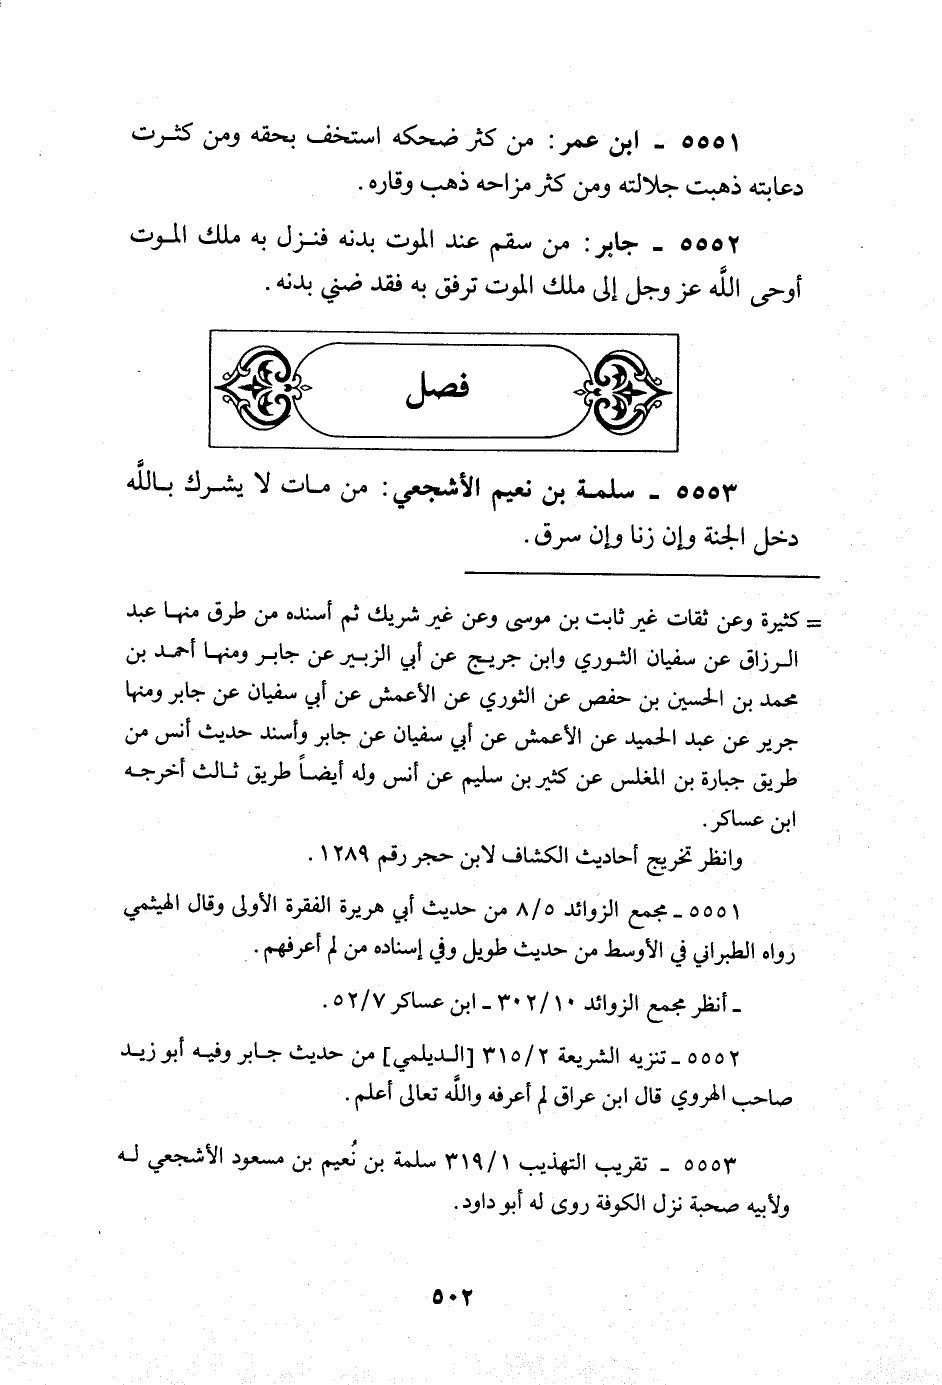 ٥٥٥١ ـ ابن عمر: من كثر ضحكه استخف بحقه ومن كثـرت
دعابته ذهبت جلالته ومن كثر مزاحه ذهب وقاره.
٥٥٥٢ ـ جابر: من سقم عند الموت بدنه فنـزل به ملك المـوت
أوحى اللَّه عز وجل إلى ملك الموت ترفق به فقد ضني بدنه.
فصل
٥٥٥٣ ـ سلمـة بن نعيم الأشجعي: من مـات لا يشـرك بـاللَّه
دخل الجنة وإن زنا وإن سرق.
= كثيرة وعن ثقات غير ثابت بن موسى وعن غير شريك ثم أسنده من طرق منهـا عبد
الـرزاق عن سفيان الثـوري وابن جريـج عن أبي الزبـير عن جابـر ومنهـا أحمـد بن
محمد بن الحسين بن حفص عن الثوري عن الأعمش عن أبي سفيان عن جابر ومنها
جرير عن عبد الحميد عن الأعمش عن أبي سفيان عن جابر وأسند حديث أنس من
طريق جبارة بن المغلس عن كثير بن سليم عن أنس وله أيضـاً طريق ثـالث أخرجـه
ابن عساكر.
وانظر تخريج أحاديث الكشاف لابن حجر رقم ١٢٨٩.
٥٥٥١ ـ مجمع الزوائد ٨/٥ من حديث أبي هريرة الفقرة الأولى وقال الهيثمي
رواه الطبراني في الأوسط من حديث طويل وفي إسناده من لم أعرفهم.
ـ أنظر مجمع الزوائد ٣٠٢/١٠ ـ ابن عساكر ٥٢/٧.
٥٥٥٢ ـ تنزيه الشريعة ٣١٥/٢ [الـديلمي] من حديث جـابر وفيـه أبو زيـد
صاحب الهروي قال ابن عراق لم أعرفه واللَّه تعالى أعلم.
٥٥٥٣ ـ تقريب التهذيب ٣١٩/١ سلمة بن نُعيم بن مسعود الأشجعي لـه
ولأبيه صحبة نزل الكوفة روى له أبو داود.
٥٠٢